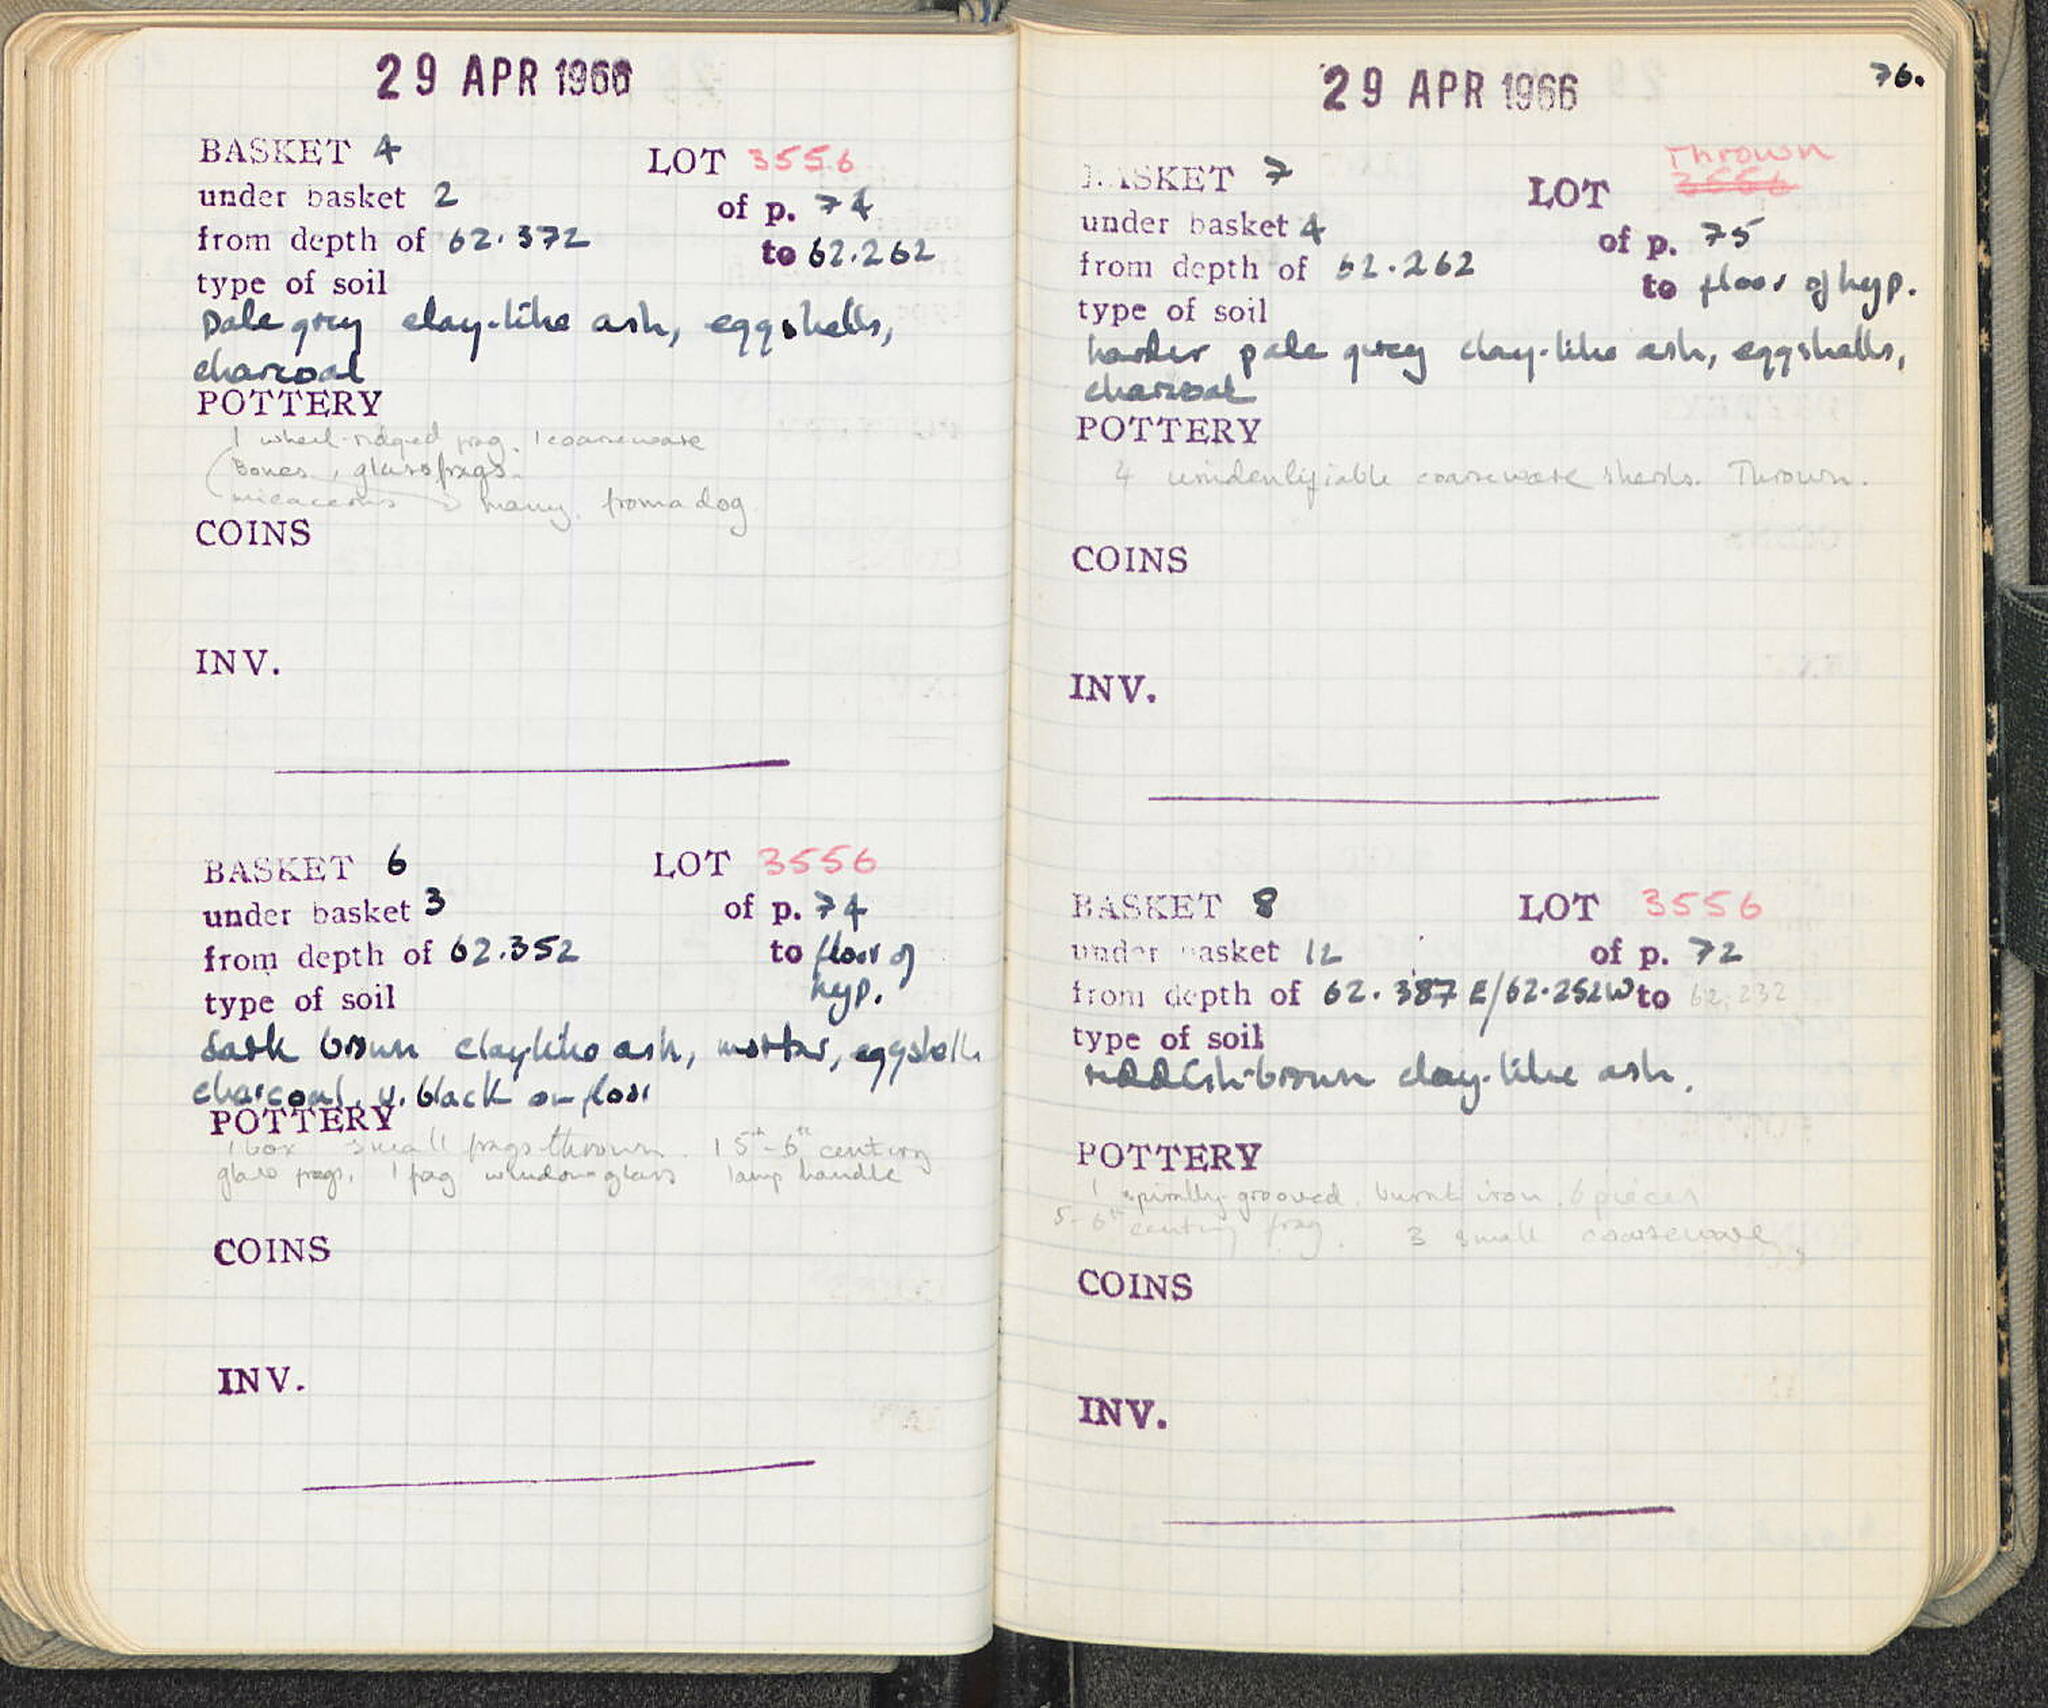 29 APR 1966
BASKET 4 LOT 3556
under basket 2 of p. 74
from depth of 62.372 to 62.262
type of soil
Pale grey clay-like ash, eggshells,
charcoal
POTTERY
1 wheel-ridged frag. 1 coarseware
(Bones, glass frags.
micaceous many from a dog
COINS
INV.
BASKET 6 LOT 3556
under basket 3 of p. 74
from depth of 62.352 to floor of
type of soil hyp.
dark brown claylike ash, mortar, eggshells
charcoal, v. black on floor
POTTERY
1 box small frags thrown. 1 5th-6th century
glass frags, 1 frag window glass lamp handle
COINS
INV.
29 APR 1966
76.
Thrown
BASKET 7 LOT 3556
under basket 4 of p. 75
from depth of 62.262 to floor of hyp.
type of soil
harder pale grey clay-like ash, eggshells,
charcoal
POTTERY
4 unidentifiable coarseware sherds. Thrown.
COINS
INV.
BASKET 8 LOT 3556
under basket 12 of p. 72
from depth of 62.387 E/62.252W to 62.232
type of soil
reddish-brown clay-like ash.
POTTERY
1 spirally-grooved. burnt iron. 6 pieces
5-6th century frag. 3 small coarseware
COINS
INV.